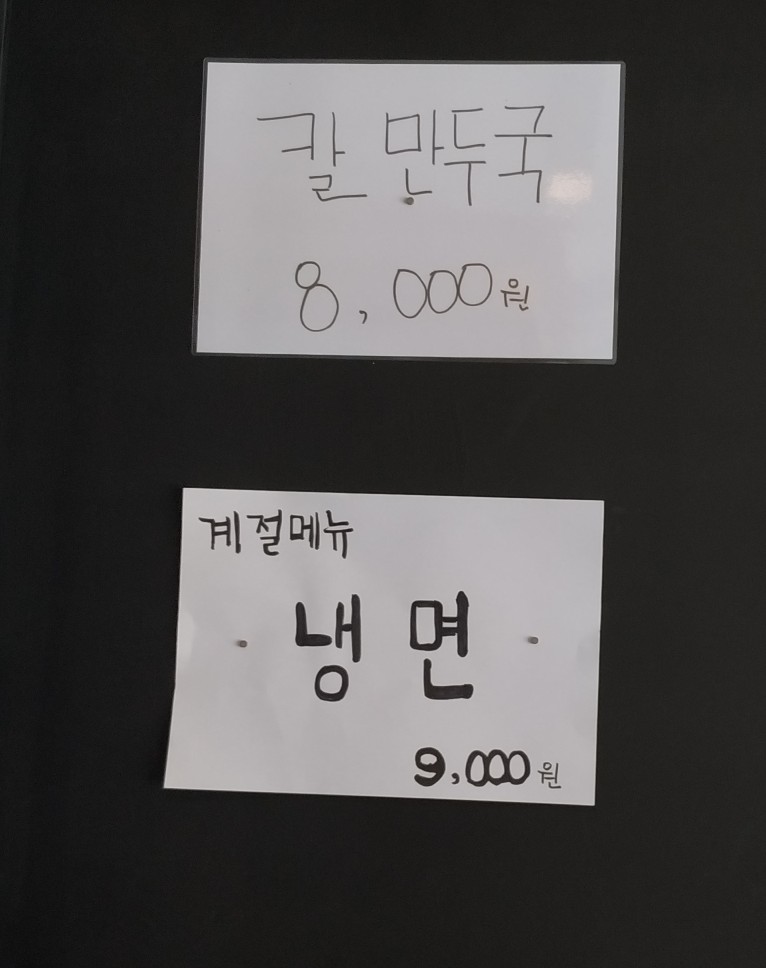 칼 만두국
8,000원
계절메뉴
냉면
9,000원